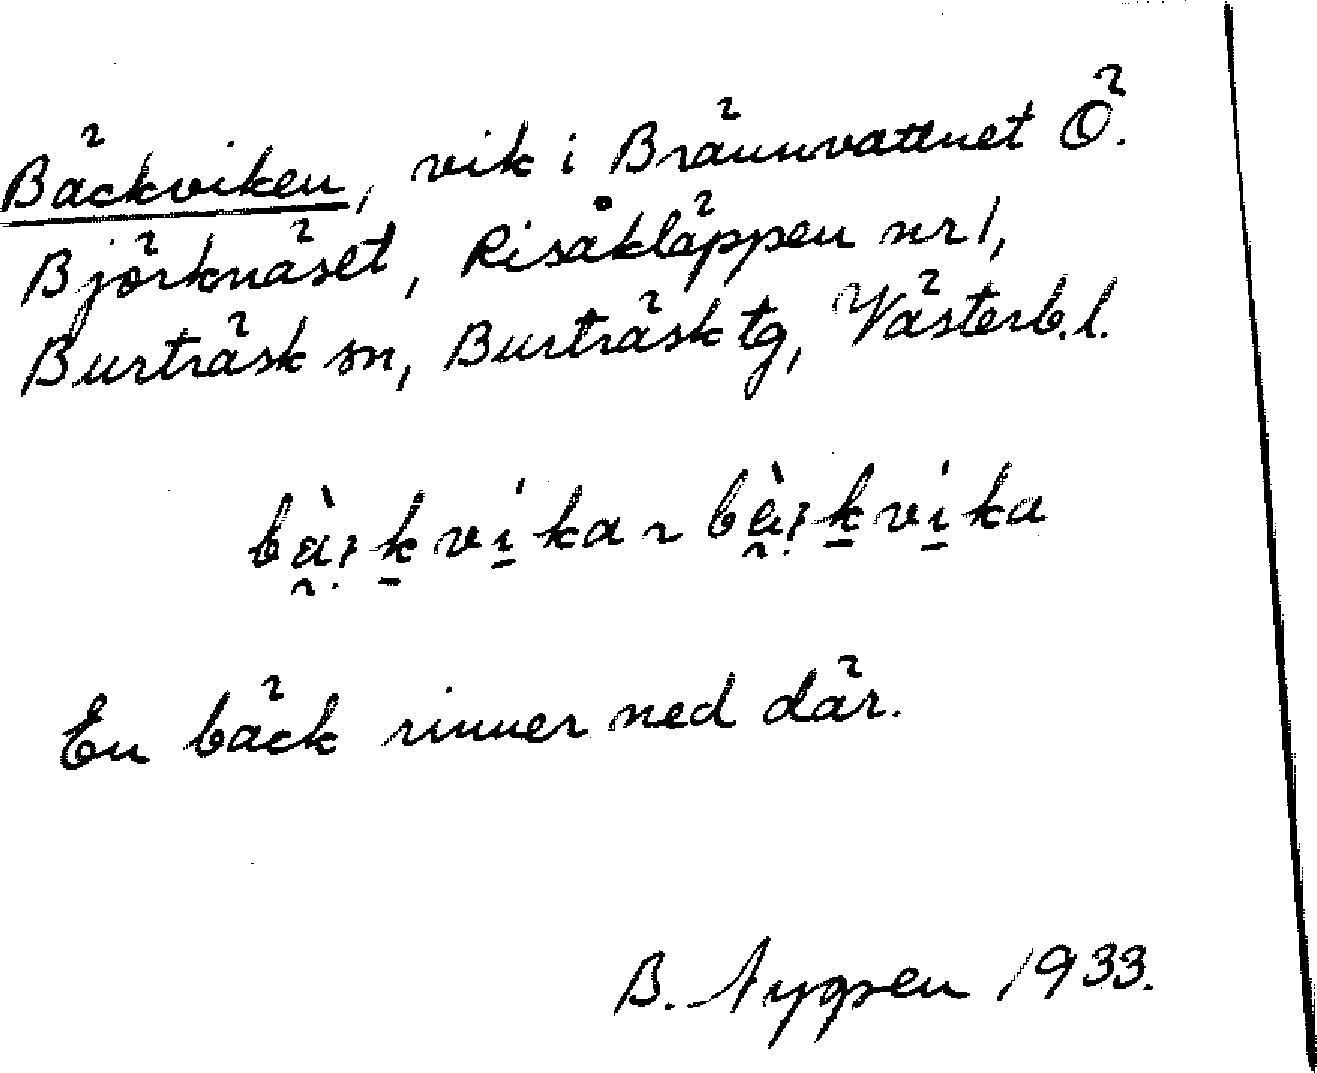 Bäckviken, vik i Brännvattnet Ö.
Björknäset, Risåkläppen nr 1,
Burträsk sn, Burträsk tg, Västerb. l.
En bäck rinner ned där.
B. Nygren 1933.